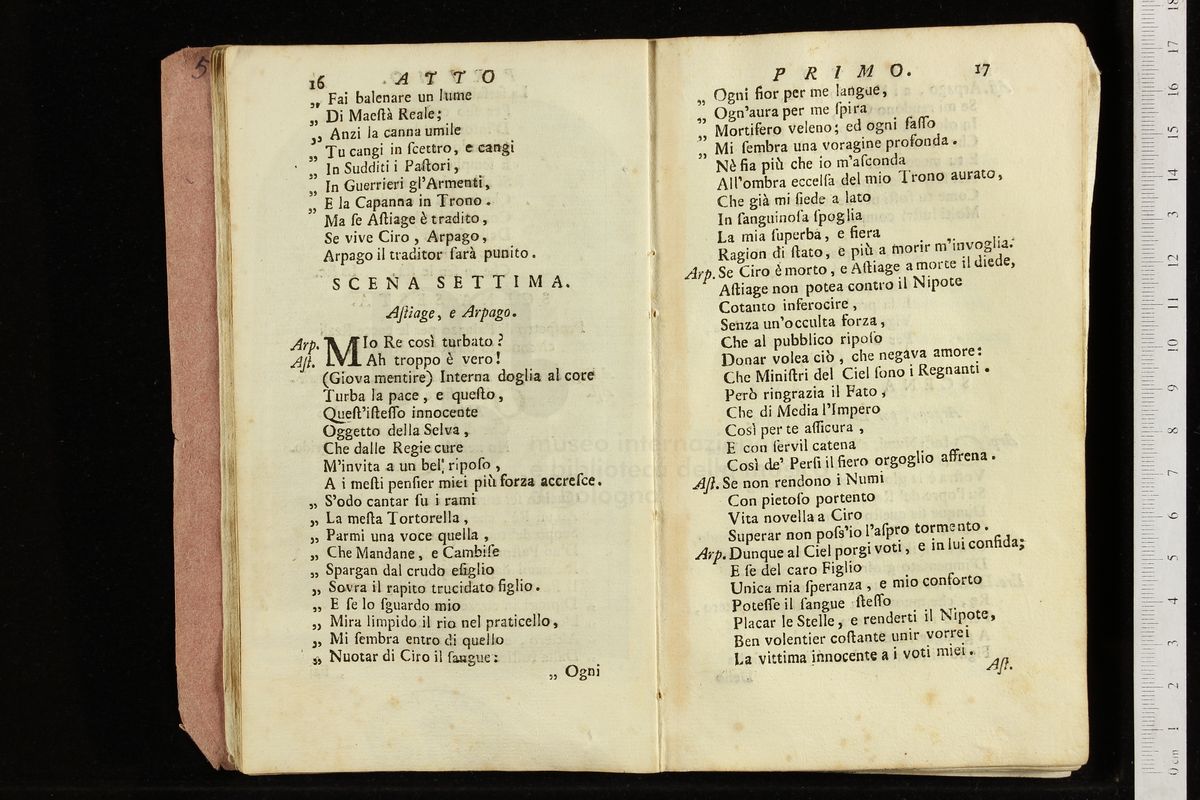 5
16 ATTO
„ Fai balenare un lume
„ Di Maeſtà Reale;
„ Anzi la canna umile
„ Tu cangi in ſcettro, e cangi
„ In Sudditi i Paſtori,
„ In Guerrieri gl'Armenti,
„ E la Capanna in Trono.
Ma ſe Aſtiage è tradito,
Se vive Ciro, Arpago,
Arpago il traditor ſarà punito.
SCENA SETTIMA.
Aſtiage, e Arpago.
Arp. MIo Re così turbato?
Aſt. Ah troppo è vero!
(Giova mentire) Interna doglia al core
Turba la pace, e queſto,
Queſt'iſteſſo innocente
Oggetto della Selva,
Che dalle Regie cure
M'invita a un bel ripoſo,
A i meſti penſier miei più forza accreſce.
„ S'odo cantar ſu i rami
„ La meſta Tortorella,
„ Parmi una voce quella,
„ Che Mandane, e Cambiſe
„ Spargan dal crudo eſiglio
„ Sovra il rapito trucidato figlio.
„ E ſe lo ſguardo mio
„ Mira limpido il rio nel praticello,
„ Mi ſembra entro di quello
„ Nuotar di Ciro il ſangue:
„ Ogni
PRIMO. 17
„ Ogni fior per me langue,
„ Ogn'aura per me ſpira
„ Mortifero veleno; ed ogni ſaſſo
„ Mi ſembra una voragine profonda.
Nè fia più che io m'aſconda
All'ombra eccelſa del mio Trono aurato,
Che già mi ſiede a lato
In ſanguinoſa ſpoglia
La mia ſuperba, e fiera
Ragion di ſtato, e più a morir m'invoglia.
Arp. Se Ciro è morto, e Aſtiage a morte il diede,
Aſtiage non potea contro il Nipote
Cotanto inferocire,
Senza un'occulta forza,
Che al pubblico ripoſo
Donar volea ciò, che negava amore:
Che Miniſtri del Ciel ſono i Regnanti.
Però ringrazia il Fato,
Che di Media l'Impero
Così per te aſſicura,
E con ſervil catena
Così de' Perſi il fiero orgoglio affrena.
Aſt. Se non rendono i Numi
Con pietoſo portento
Vita novella a Ciro
Superar non poſs'io l'aſpro tormento.
Arp. Dunque al Ciel porgi voti, e in lui confida;
E ſe del caro Figlio
Unica mia ſperanza, e mio conforto
Poteſſe il ſangue ſteſſo
Placar le Stelle, e renderti il Nipote,
Ben volentier coſtante unir vorrei
La vittima innocente a i voti miei.
Aſt.
museo internazionale
e biblioteca della
di bologna
0 cm 1 2 3 4 5 6 7 8 9 10 11 12 13 14 15 16 17 18